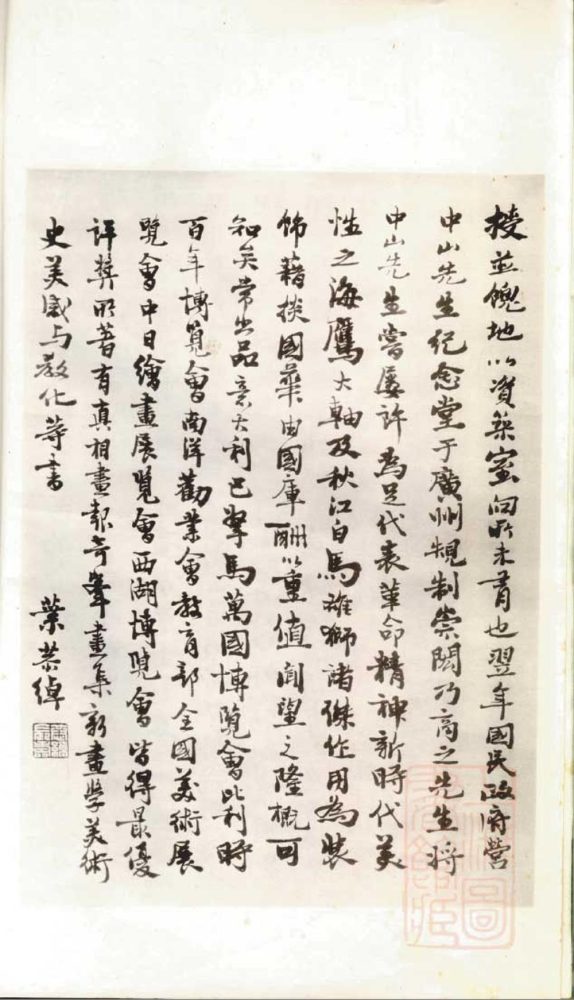 授並餽地以資築室向所未有也翌年國民政府營
中山先生紀念堂于廣州規制崇閎乃商之先生將
中山先生嘗屢許為足代表革命精神新時代美
性之海鷹大軸及秋江白馬雄獅諸傑作用為裝
飾藉掞國華由國庫酬以重值聞望之隆概可
知矣常出品意大利巴拏馬萬國博覽會比利時
百年博覽會南洋勸業會教育部全國美術展
覽會中日繪畫展覽會西湖博覽會皆得最優
評獎所著有真相畫報奇峯畫集新畫學美術
史美感与教化等書
葉恭綽